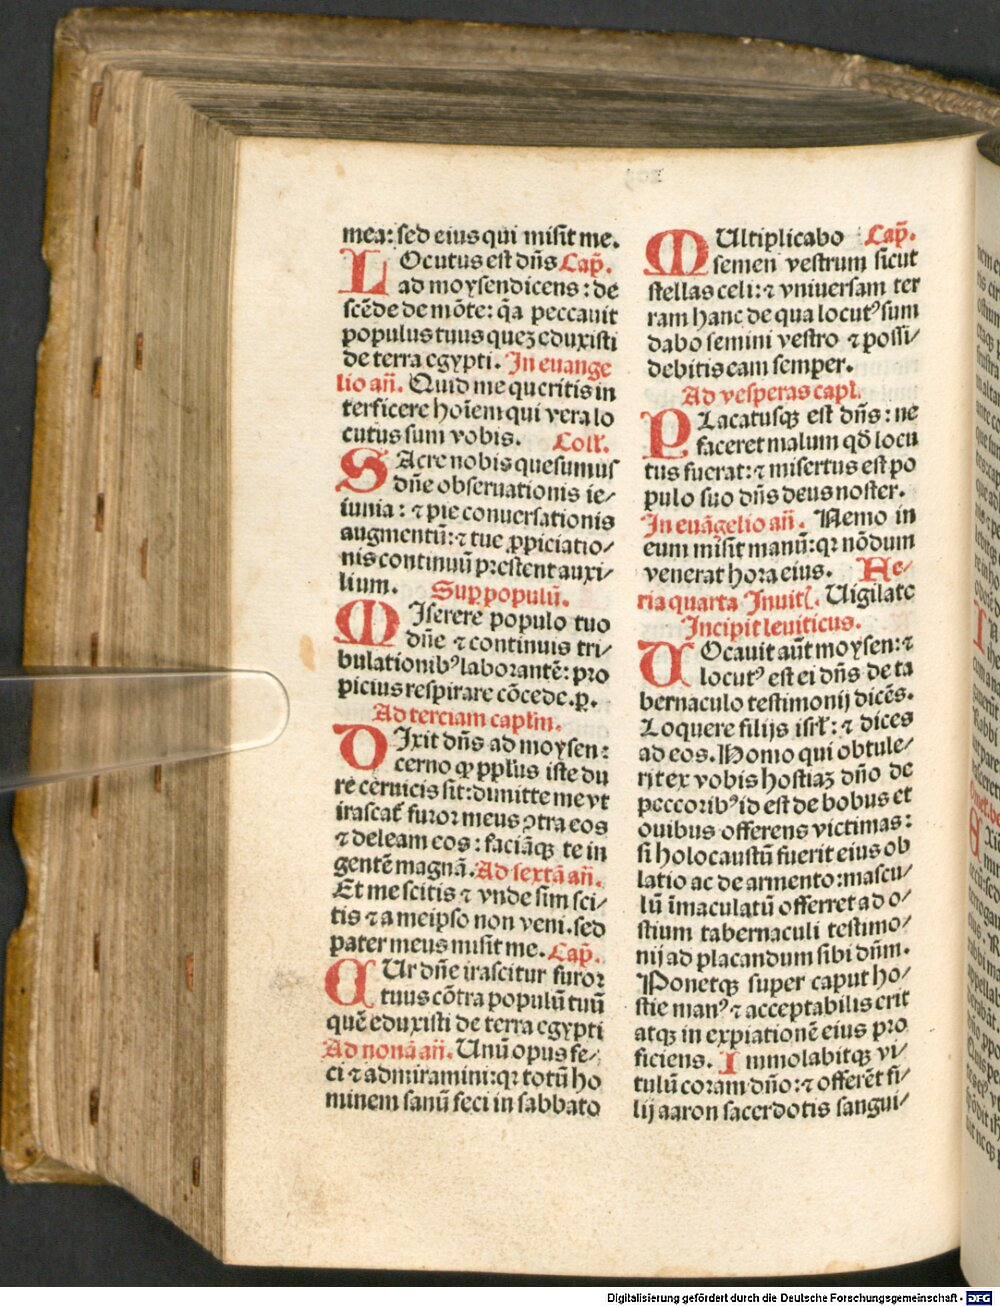 mea: sed eius qui misit me.
LOcutus est dñs Cap̃.
ad moysen dicens: de
scēde de mōte: q̃a peccauit
populus tuus quez eduxisti
de terra egypti. In euange
lio añ. Quid me queritis in
terficere hoīem qui vera lo
cutus sum vobis. Coll'.
SAcre nobis quesumus
dñe obseruationis ie⸗
iunia: ⁊ pie conuersationis
augmentū: ⁊ tue ꝓpiciatio⸗
nis continuū prestent auxi⸗
lium. Suꝑ populū.
MIserere populo tuo
dñe ⁊ continuis tri⸗
bulationibꝰ laborantē: pro
picius respirare cōcede. ꝑ.
Ad terciam capl'm.
DIxit dñs ad moysen:
cerno ꝙ ppl'us iste du
re ceruicis sit: dimitte me vt
irascat᷑ furor meus ꝯtra eos
⁊ deleam eos: faciāqꝫ te in
gentē magnā. Ad sextā añ.
Et me scitis ⁊ vnde sim sci⸗
tis ⁊ a meipso non veni. sed
pater meus misit me. Cap̃.
CUr dñe irascitur furor
tuus cōtra populū tuū
quē eduxisti de terra egypti
Ad nonā añ. Unū opus fe⸗
ci ⁊ admiramini: qꝛ totū ho
minem sanū feci in sabbato
MUltiplicabo Cap̃.
semen vestrum sicut
stellas celi: ⁊ vniuersam ter
ram hanc de qua locutꝰ sum
dabo semini vestro ⁊ possi⸗
debitis eam semper.
Ad vesperas capl'.
PLacatusqꝫ est dñs: ne
faceret malum qď locu
tus fuerat: ⁊ misertus est po
pulo suo dñs deus noster.
In euāgelio añ. Nemo in
eum misit manū: qꝛ nōdum
venerat hora eius. Fe⸗
ria quarta Inuit'. Uigilate
Incipit leuiticus.
UOcauit aūt moysen: ⁊
locutꝰ est ei dñs de ta
bernaculo testimonij dicēs.
Loquere filijs isrl': ⁊ dices
ad eos. Homo qui obtule⸗
rit ex vobis hostiaz dño de
peccoribꝰ id est de bobus et
ouibus offerens victimas:
si holocaustū fuerit eius ob
latio ac de armento: mascu⸗
lū īmaculatū offerret ad o⸗
stium tabernaculi testimo⸗
nij ad placandum sibi dñm.
Ponetqꝫ super caput ho⸗
stie manꝰ ⁊ acceptabilis erit
atqꝫ in expiationē eius pro
ficiens. Immolabitqꝫ vi⸗
tulū coram dño: ⁊ offerēt fi⸗
lij aaron sacerdotis sangui⸗
Digitalisierung gefördert durch die Deutsche Forschungsgemeinschaft - DFG